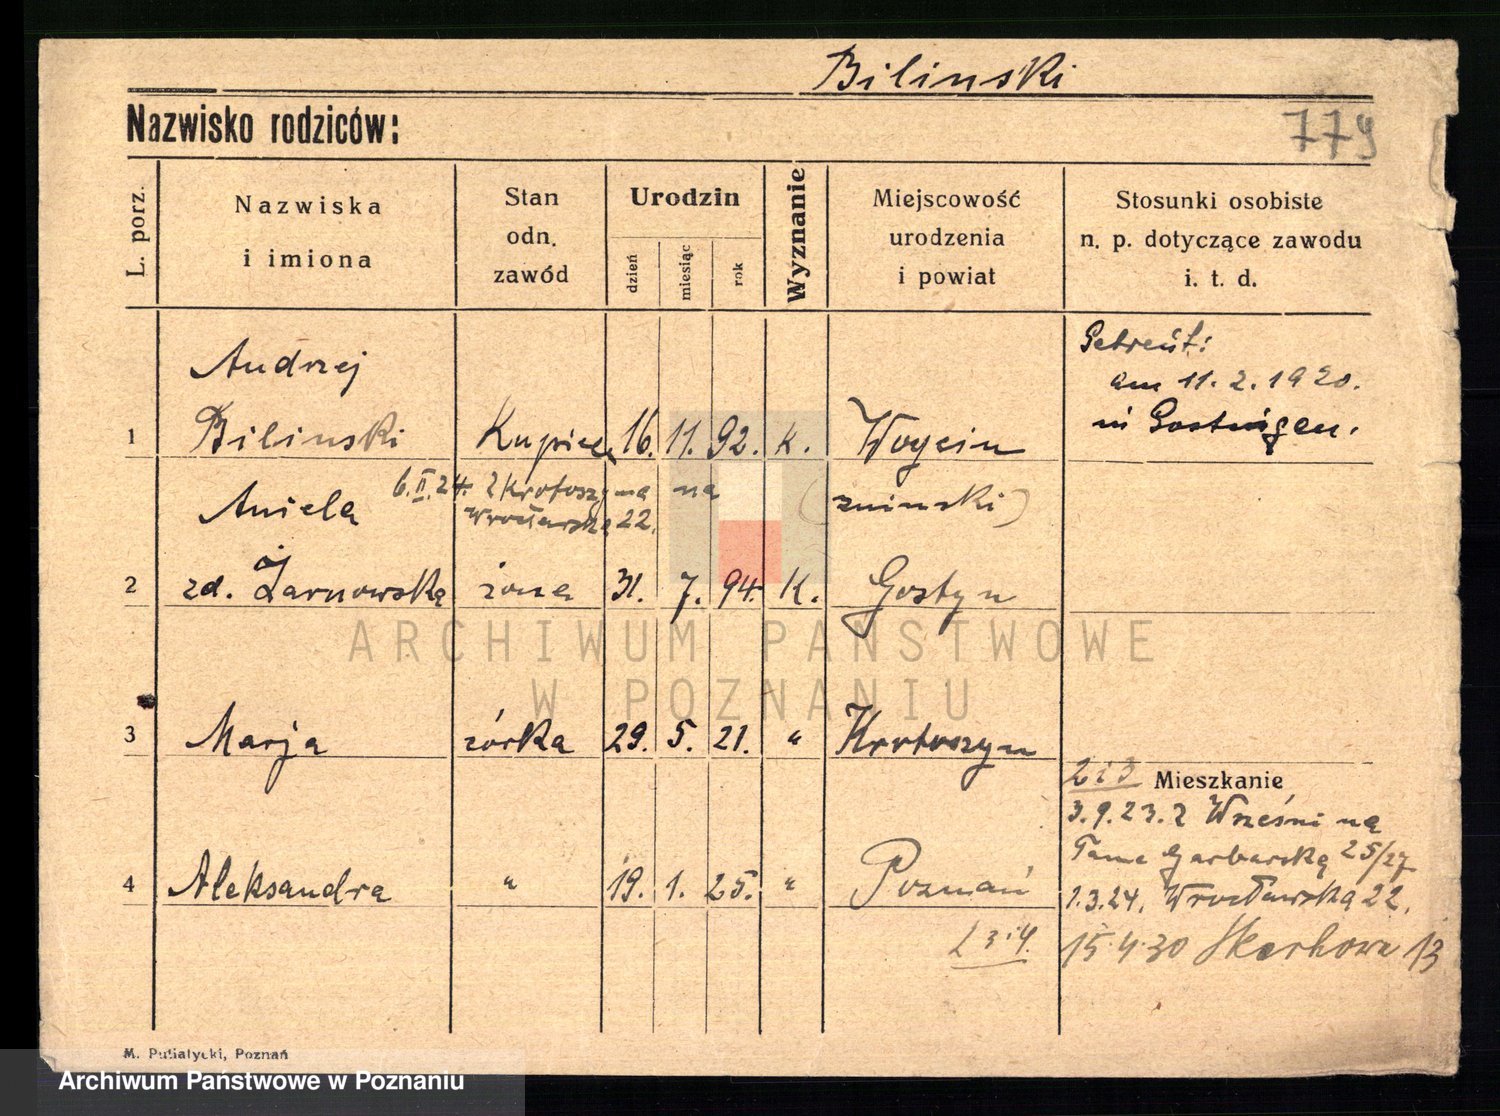 Bilinski
Nazwisko rodziców:
779
L. porz.
Nazwiska
i imiona
Stan
odn.
zawód
Urodzin
dzień
miesiąc
rok
Wyznanie
Miejscowość
urodzenia
i powiat
Stosunki osobiste
n. p. dotyczące zawodu
i. t. d.
Andrzej
1 Bilinski Kupiec 16. 11. 92. K. Wogcin
(zninski)
Getreut:
am 11. 2. 1920.
in Gostingen.
6.II.24. z Krotoszyna na
Wrocławska 22.
Aniela
2 zd. Żarnowska żona 31. 7. 94. K. Gostyn
3 Marja córka 29. 5. 21. " Krotoszyn
2 i 3 Mieszkanie
3.9.23. z Wrześni na
Tama Garbarską 25/27
1.3.24. Wrocławska 22.
4 Aleksandra " 19. 1. 25. " Poznań
15.4.30 Skarbowa 13
M. Putiatycki, Poznań
ARCHIWUM PAŃSTWOWE
W POZNANIU
Archiwum Państwowe w Poznaniu